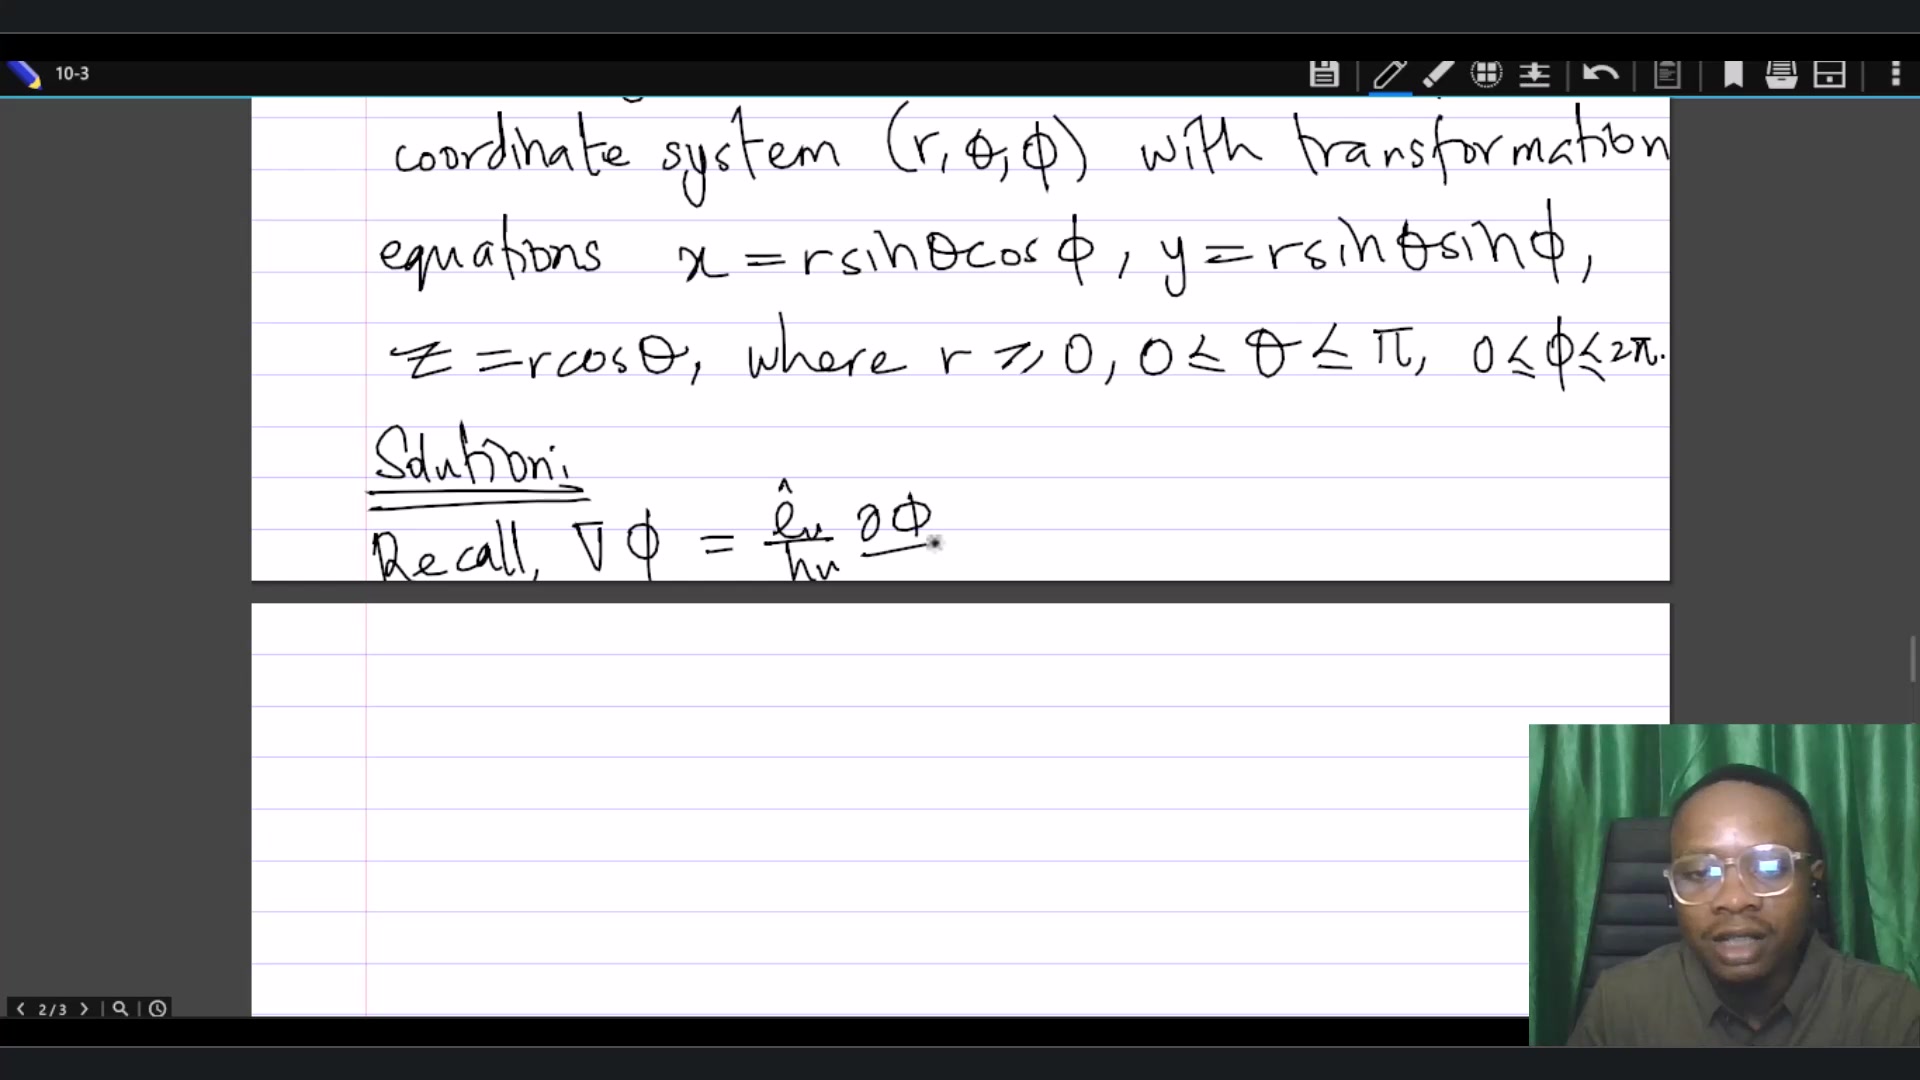 10-3
coordinate system (r, θ, ϕ) with transformation
equations x = r sin θ cos ϕ, y = r sin θ sin ϕ,
z = r cos θ, where r ⩾ 0, 0 ≤ θ ≤ π, 0 ≤ ϕ ≤ 2π.
Solution:
Recall, ∇ϕ = ê_u/h_u ∂ϕ
2/3